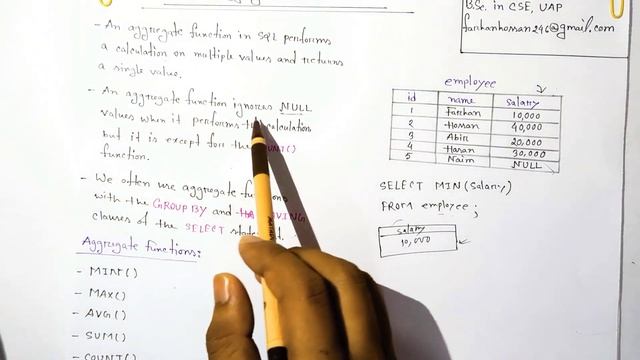 B.Sc. in CSE, UAP
farihanhossan246@gmail.com
- An aggregate function in SQL performs
a calculation on multiple values and returns
a single value.
- An aggregate function ignores NULL
values when it performs the calculation
but it is except for the
function.
- We often use aggregate
with the GROUP BY and
clauses of the SELECT
Aggregate Functions:
- MIN()
- MAX()
- AVG()
- SUM()
- COUNT()
employee
id name salary
1 Farihan 10,000
2 Hossan 40,000
3 Abir 20,000
4 Hasan 30,000
5 Naim NULL
SELECT MIN(salary)
FROM employee;
salary
10,000